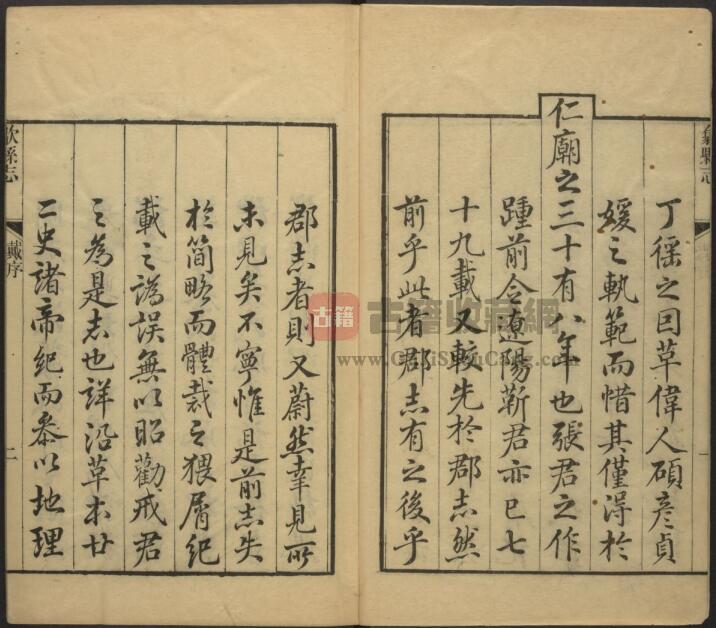 歙縣志
丁徭之因革偉人碩彦貞
媛之軌範而惜其僅得於
仁廟之三十有八年也張君之作
踵前令遼陽靳君亦已七
十九載又較先於郡志然
前乎此者郡志有之後乎
郡志者則又蔚然幸見所
未見矣不寧惟是前志失
於簡略而體裁之猥屑紀
載之譌誤無以昭勸戒君
之為是志也詳沿草本廿
二史諸帝紀而參以地理
歙縣志
戴序
二
古籍
古籍收藏網